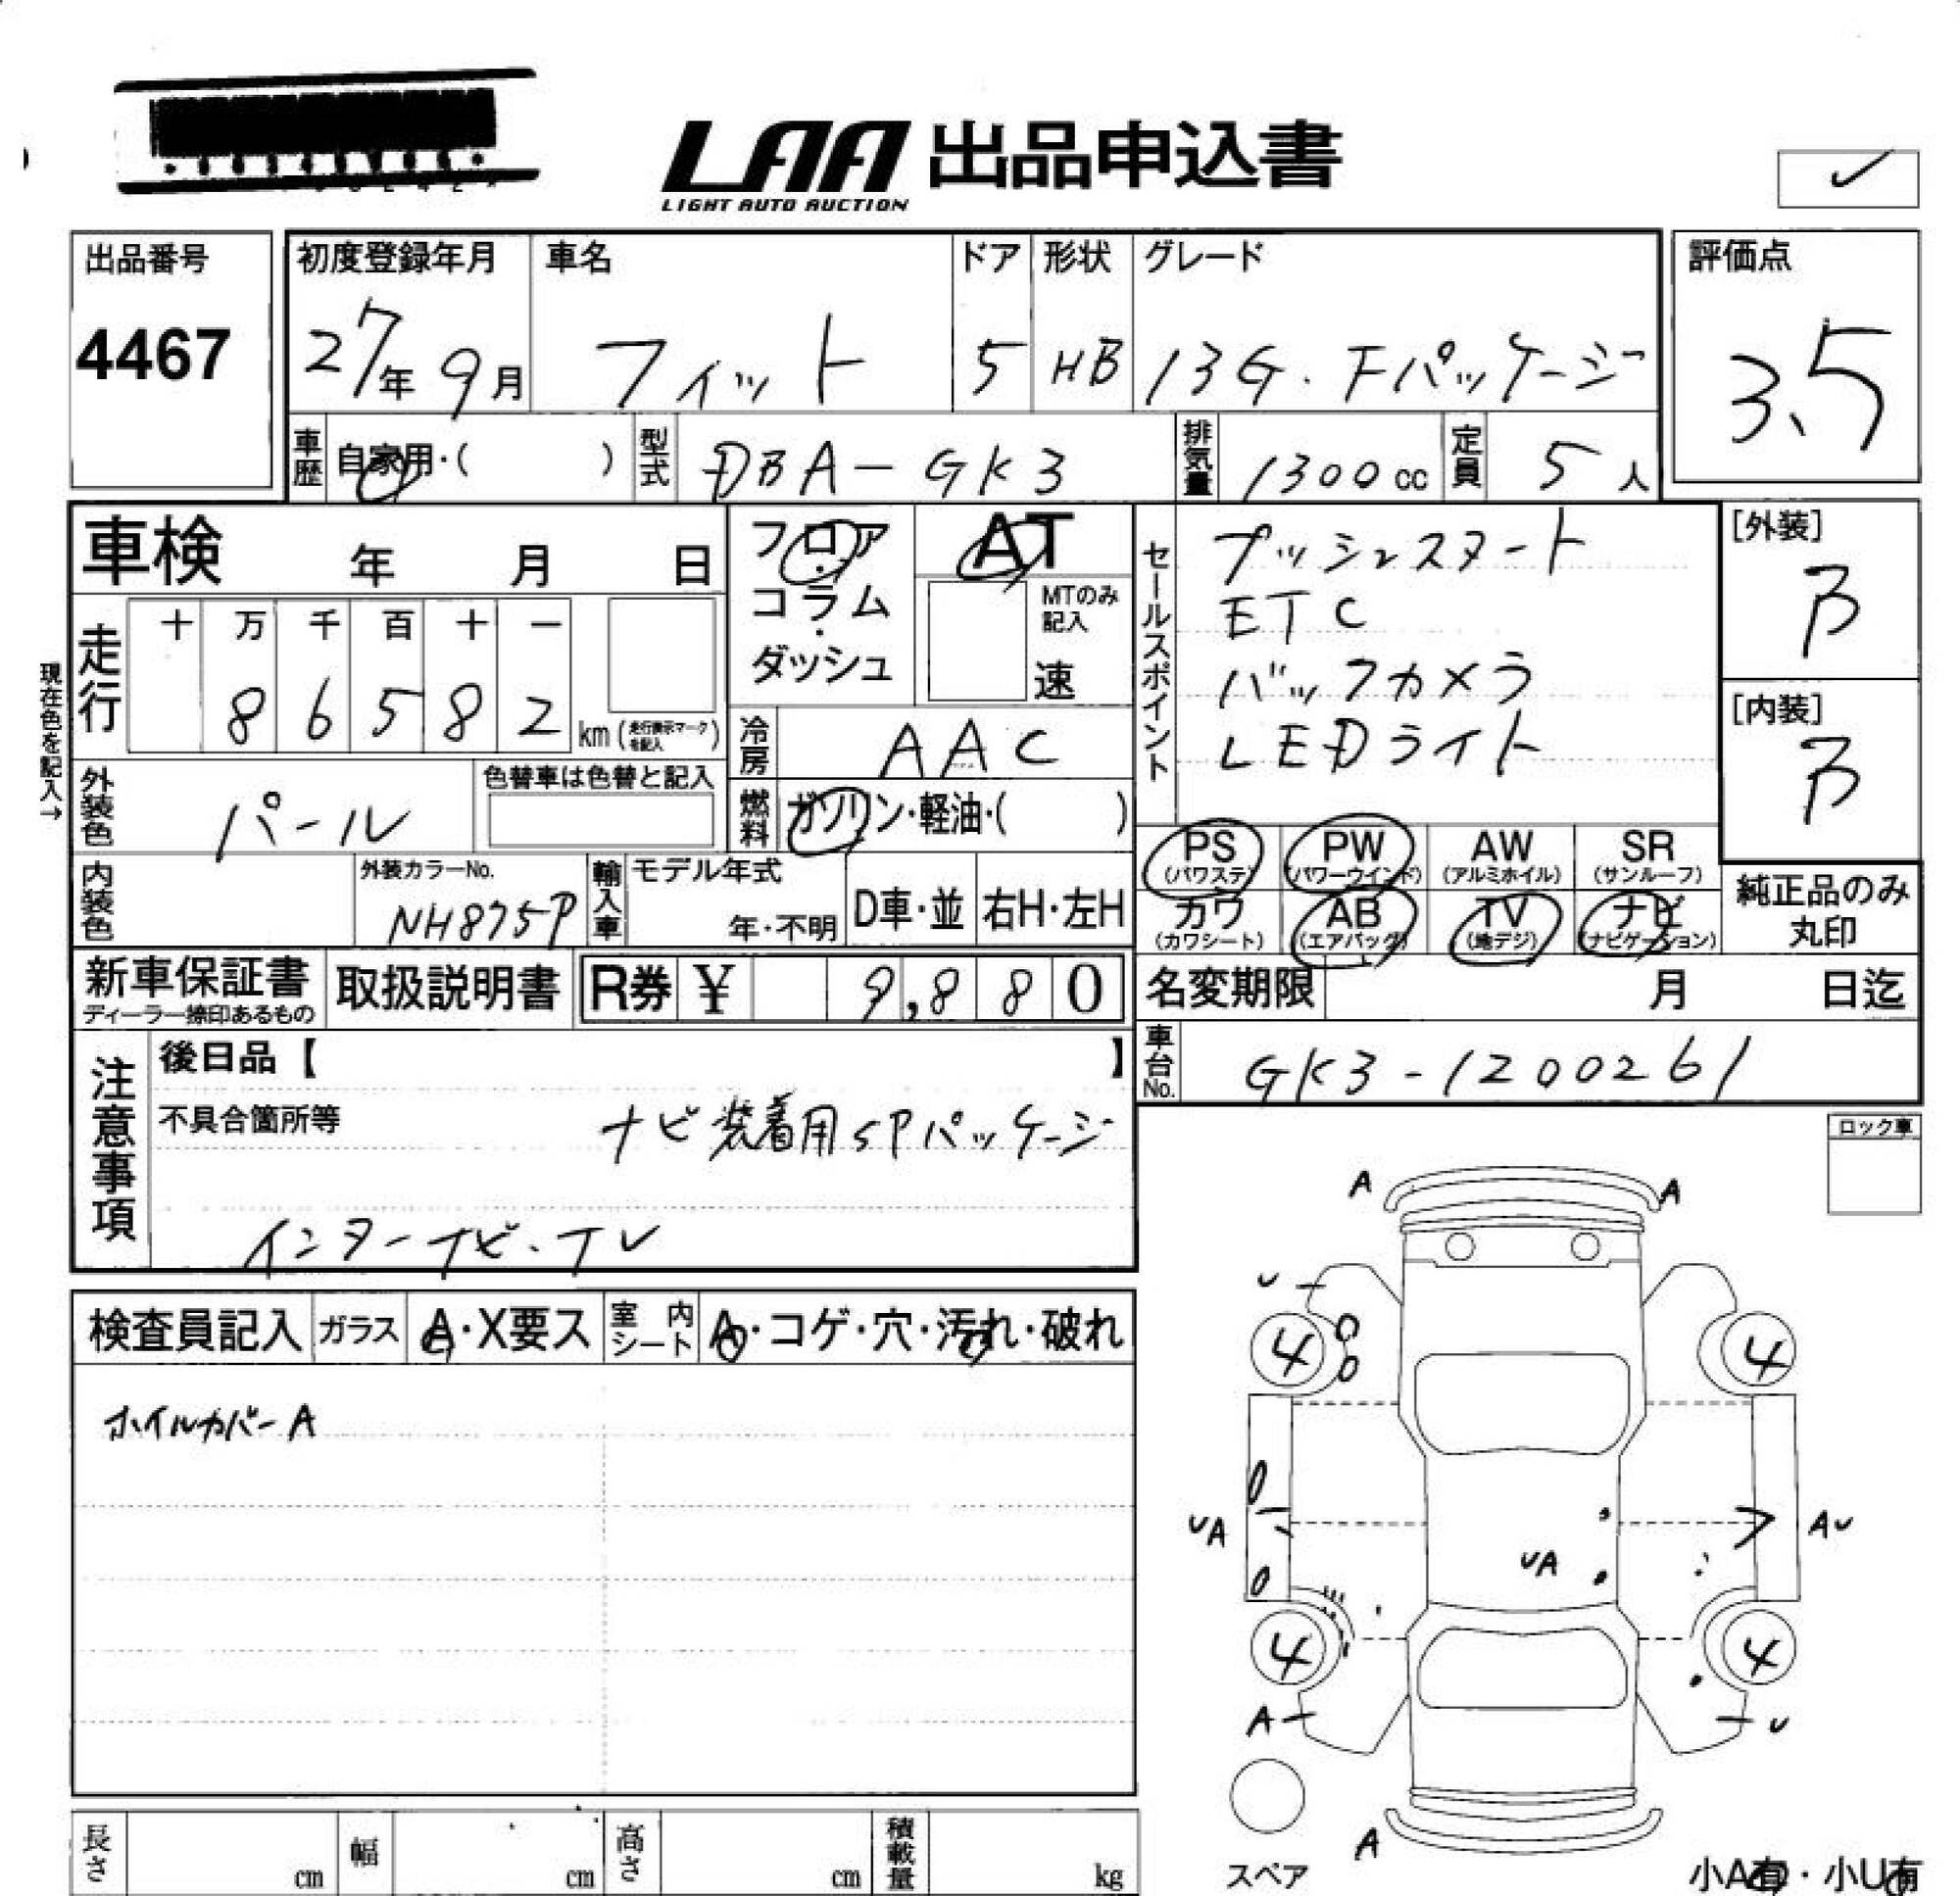 LAA 出品申込書
LIGHT AUTO AUCTION
✓
出品番号 初度登録年月 車名 ドア 形状 グレード 評価点
4467 27年 9月 フィット 5 HB 13G・Fパッケージ 3.5
車歴 自家用・( ) 型式 DBA-GK3 排気量 1300cc 定員 5人
車検 年 月 日
フロア・コラム・ダッシュ
AT
MTのみ記入
速
セールスポイント
プッシュスタート
ETC
バックカメラ
LEDライト
[外装]
B
[内装]
B
現在色を記入→
走行 十 万 千 百 十 一
8 6 5 8 2 km(走行表示マークを記入)
冷房 AAC
外装色 パール 色替車は色替と記入
燃料 ガソリン・軽油・( )
PS (パワステ) PW (パワーウインド) AW (アルミホイル) SR (サンルーフ)
カワ (カワシート) AB (エアバッグ) TV (地デジ) ナビ (ナビゲーション)
純正品のみ丸印
内装色 外装カラーNo. NH875P 輸入車 モデル年式 年・不明 D車・並 右H・左H
新車保証書 取扱説明書 R券 ¥ 9,880
ディーラー捺印あるもの
名変期限 月 日迄
車台No. GK3-1200261
注意事項
後日品【 】
不具合箇所等 ナビ装着用SPパッケージ
インターナビ・TV
ロック車
検査員記入 ガラス A・X要ス 室内シート A・コゲ・穴・汚れ・破れ
ホイルカバーA
A A
U
4 4
UA AU
UA
4 4
A U
A
スペア
小A有・小U有
長さ cm 幅 cm 高さ cm 積載量 kg